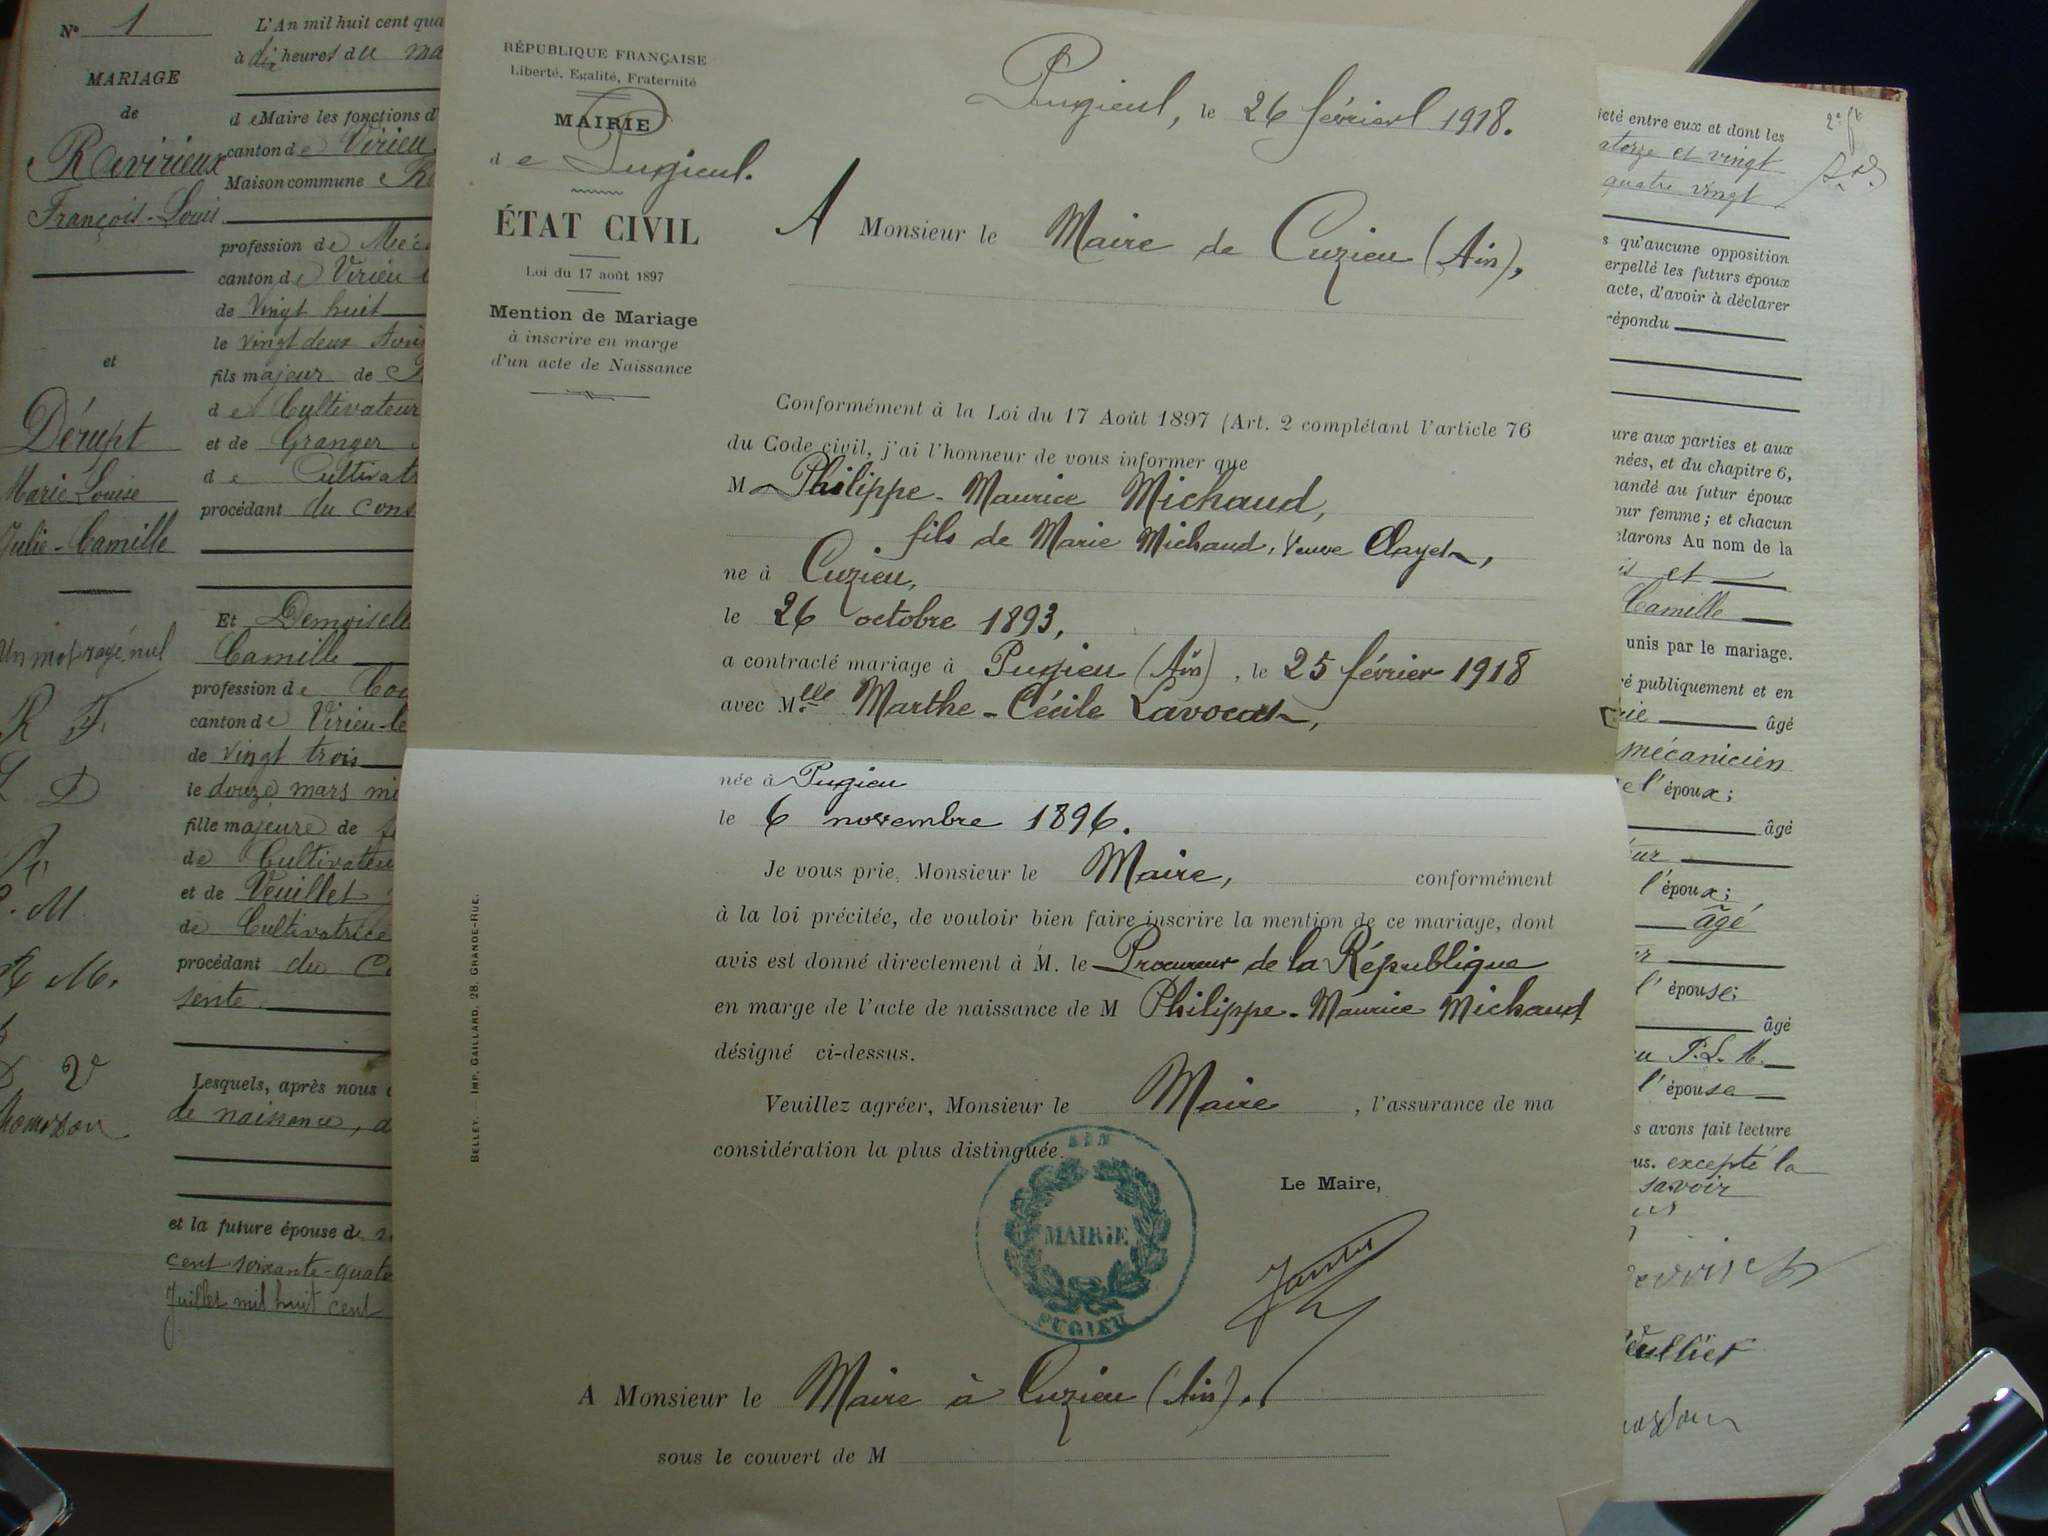 N° 1
MARIAGE
de
Revirieux
François-Louis
et
Dérupt
Marie Louise
Julie-Camille
Un mot rayé nul
R F.
L D
R. M.
D V
L'An mil huit cent qua
à dix heures du ma
de Maire les fonctions d'
canton de Virieu
Maison commune
profession de Méc
canton de Virieu
de vingt huit
le vingt deux Avri
fils majeur de
de Cultivateur
et de Granger
de Cultivatr
procédant du cons
Et Demoiselle
Camille
profession de Cou
canton de Virieu-le
de vingt trois
le douze mars mi
fille majeure de
de Cultivateu
et de Veuillet
de Cultivatrice
procédant du Co
sente.
Lesquels, après nous
de naissance, d
et la future épouse de
cent soixante-quato
Juillet mil huit cent
RÉPUBLIQUE FRANÇAISE
Liberté, Egalité, Fraternité
MAIRIE
de Pugieul.
ÉTAT CIVIL
Loi du 17 août 1897
Mention de Mariage
à inscrire en marge
d'un acte de Naissance
Pugieul, le 26 février 1918.
A Monsieur le Maire de Cuzieu (Ain),
Conformément à la Loi du 17 Août 1897 (Art. 2 complétant l'article 76
du Code civil, j'ai l'honneur de vous informer que
M Philippe-Maurice Michaud,
fils de Marie Michaud, Veuve Clayet,
né à Cuzieu,
le 26 octobre 1893,
a contracté mariage à Pugieu (Ain), le 25 février 1918
avec Melle Marthe-Cécile Lavocat,
née à Pugieu
le 6 novembre 1896.
Je vous prie, Monsieur le Maire, conformément
à la loi précitée, de vouloir bien faire inscrire la mention de ce mariage, dont
avis est donné directement à M. le Procureur de la République
en marge de l'acte de naissance de M Philippe-Maurice Michaud
désigné ci-dessus.
Veuillez agréer, Monsieur le Maire, l'assurance de ma
considération la plus distinguée.
Le Maire,
AIN
MAIRIE
PUGIEU
A Monsieur le Maire à Cuzieu (Ain).
sous le couvert de M
BELLEY. — IMP. GAILLARD, 28, GRANDE-RUE.
2e ft
iété entre eux et dont les
atorze et vingt
quatre vingt
s qu'aucune opposition
erpellé les futurs époux
acte, d'avoir à déclarer
répondu
ure aux parties et aux
nées, et du chapitre 6,
mandé au futur époux
our femme; et chacun
clarons Au nom de la
is et
Camille
unis par le mariage.
é publiquement et en
rie âgé
mécanicien
e l'époux;
âgé
eur
l'époux;
âgé
l'épouse;
âgé
au P.L.M.
l'épouse
s avons fait lecture
us. excepté la
savoir
Veullier